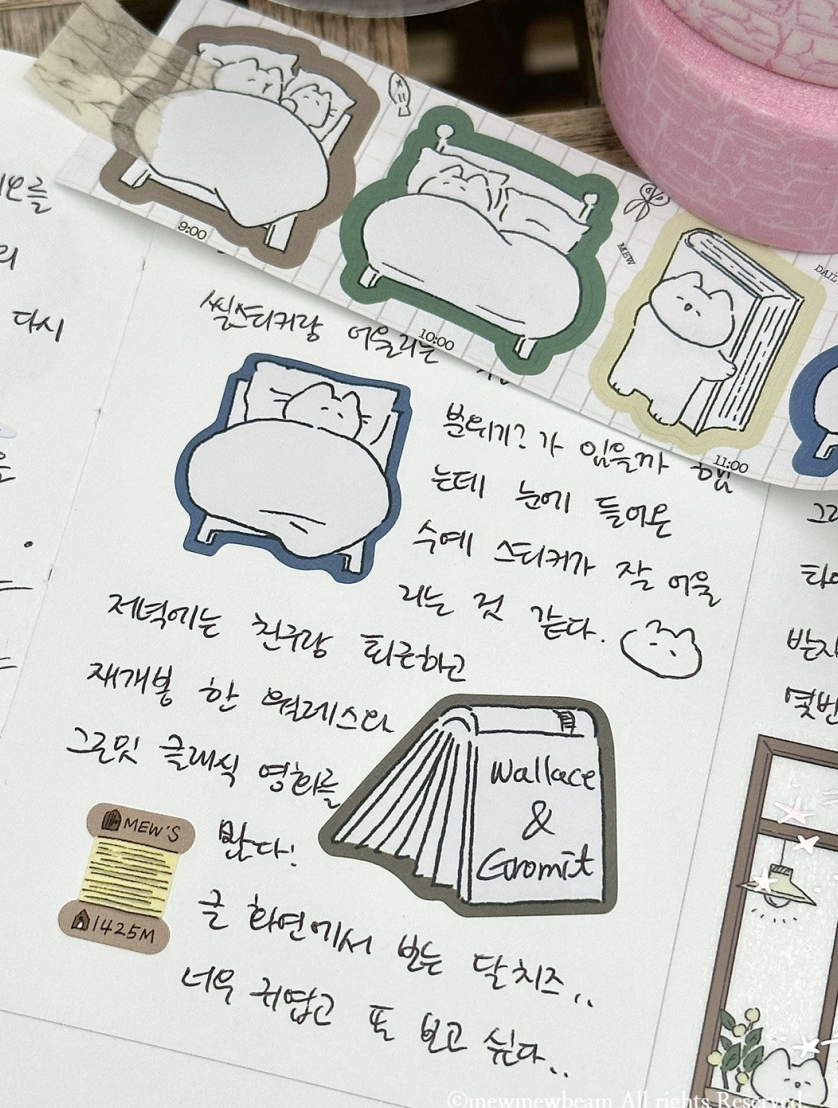 9:00
10:00
MEW
11:00
다시
씰스티커랑 어울리는
분위기?가 있을까 했
는데 눈에 들어온
수예 스티커가 잘 어울
리는 것 같다.
저녁에는 친구랑 퇴근하고
재개봉 한 월레스와
그로밋 클래식 영화를
봤다!
Wallace
&
Gromit
MEW'S
1425M
큰 화면에서 보는 달 치즈..
너무 귀엽고 또 보고 싶다..
몇번
©mewmewbeam All rights Reserved